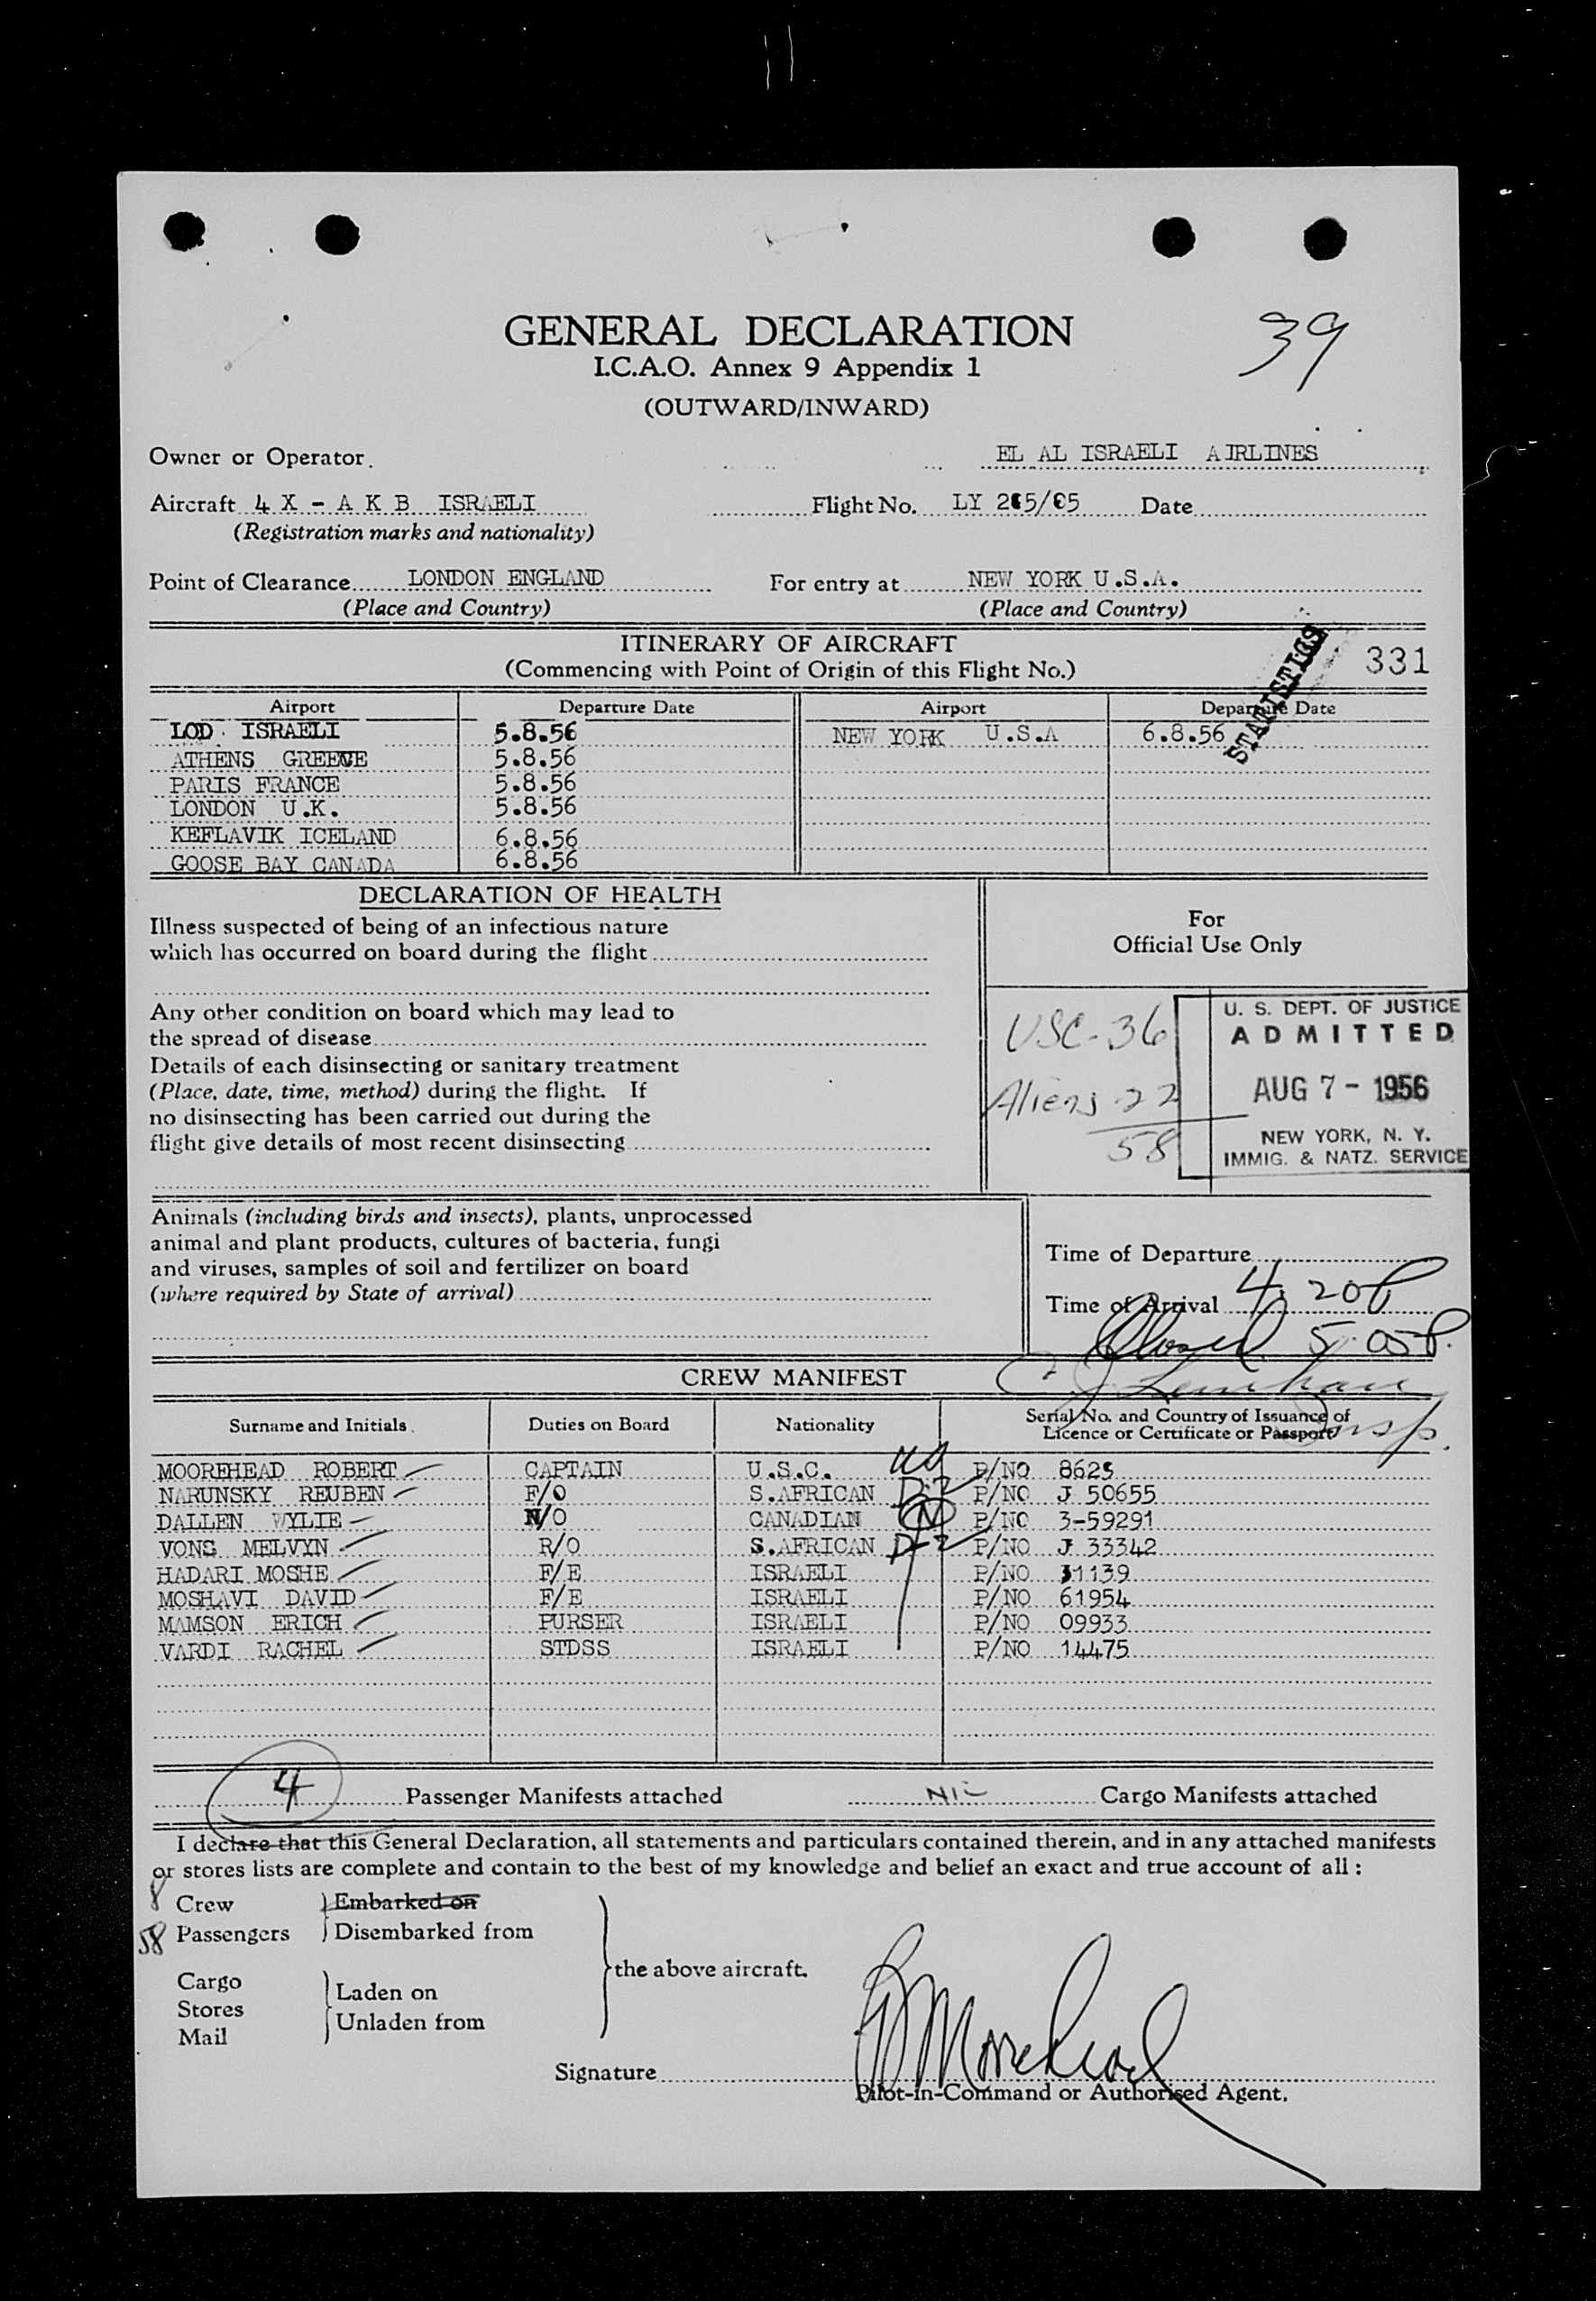 39
GENERAL DECLARATION
I.C.A.O. Annex 9 Appendix 1
(OUTWARD/INWARD)
Owner or Operator. EL AL ISRAELI AIRLINES
Aircraft 4 X - A K B ISRAELI Flight No. LY Date
(Registration marks and nationality)
Point of Clearance LONDON ENGLAND For entry at NEW YORK U.S.A.
(Place and Country) (Place and Country)
ITINERARY OF AIRCRAFT
(Commencing with Point of Origin of this Flight No.) STATISTICS 331
Airport Departure Date Airport Departure Date
LOD ISRAELI 5.8.56 NEW YORK U.S.A 6.8.56
ATHENS GREECE 5.8.56
PARIS FRANCE 5.8.56
LONDON U.K. 5.8.56
KEFLAVIK ICELAND 6.8.56
GOOSE BAY CANADA 6.8.56
DECLARATION OF HEALTH
Illness suspected of being of an infectious nature
which has occurred on board during the flight
Any other condition on board which may lead to
the spread of disease
Details of each disinsecting or sanitary treatment
(Place, date, time, method) during the flight. If
no disinsecting has been carried out during the
flight give details of most recent disinsecting
For
Official Use Only
USC-36
Aliens-22
58
U. S. DEPT. OF JUSTICE
ADMITTED
AUG 7 - 1956
NEW YORK, N. Y.
IMMIG. & NATZ. SERVICE
Animals (including birds and insects), plants, unprocessed
animal and plant products, cultures of bacteria, fungi
and viruses, samples of soil and fertilizer on board
(where required by State of arrival)
Time of Departure
Time of Arrival 4:20P
Closed 5:05P.
CREW MANIFEST
Insp.
Surname and Initials. Duties on Board Nationality Serial No. and Country of Issuance of
Licence or Certificate or Passport
MOOREHEAD ROBERT CAPTAIN U.S.C. P/NO 8625
NARUNSKY REUBEN F/O S.AFRICAN D-2 P/NO J 50655
DALLEN WYLIE N/O CANADIAN N P/NO 3-59291
VONS MELVYN R/O S.AFRICAN D-2 P/NO J 33342
HADARI MOSHE F/E ISRAELI P/NO 31139
MOSHAVI DAVID F/E ISRAELI P/NO 61954
MAMSON ERICH PURSER ISRAELI P/NO 09933
VARDI RACHEL STDSS ISRAELI P/NO 14475
4 Passenger Manifests attached NIL Cargo Manifests attached
I declare that this General Declaration, all statements and particulars contained therein, and in any attached manifests
or stores lists are complete and contain to the best of my knowledge and belief an exact and true account of all :
8 Crew Embarked on
58 Passengers Disembarked from
the above aircraft.
Cargo Laden on
Stores
Unladen from
Mail
Signature
Pilot-in-Command or Authorised Agent.